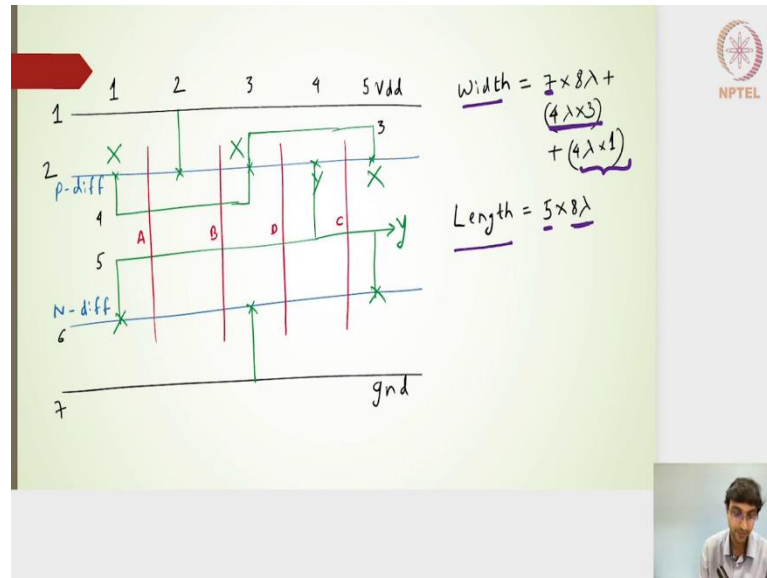 NPTEL
1 2 3 4 5 Vdd
1
3
X X
2
P-diff
y X
4
A B D C
5
y
N-diff
6
7
gnd
Width = 7 x 8λ +
(4λx3)
+ (4λx1)
Length = 5 x 8λ